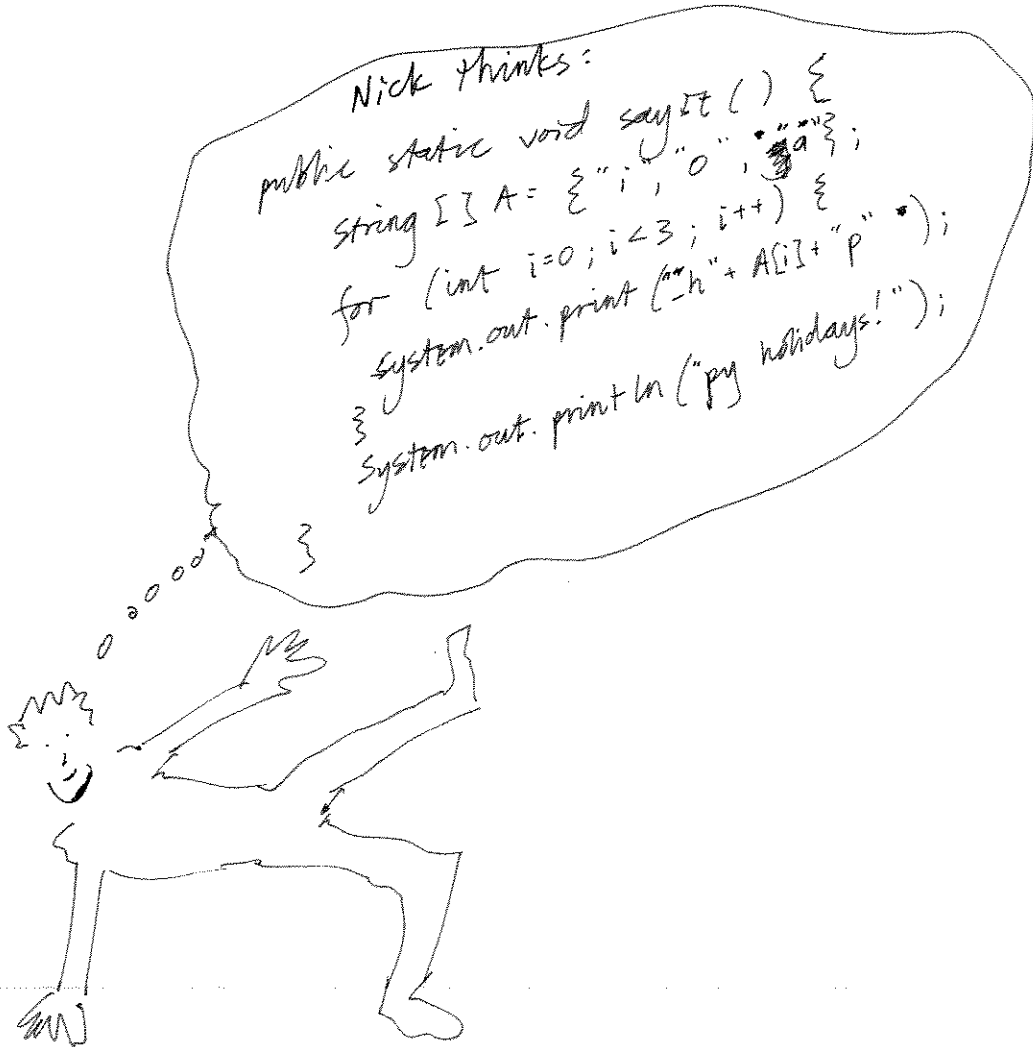 Nick thinks:
public static void sayIt () {
string [] A = {"i", "o", "a"};
for (int i=0; i<3; i++) {
system.out.print ("_h" + A[i] + "p" );
}
System.out.println ("py holidays!");
}